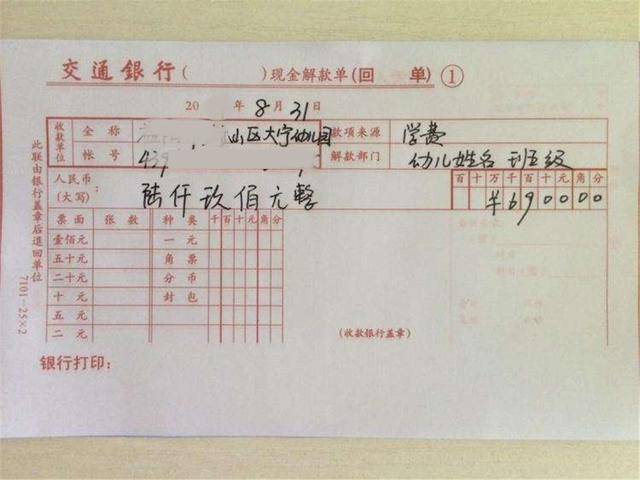 交通銀行( )现金解款单(回 单) ①
20 年 8 月 31 日
收款单位 全 称 山区大宁幼儿园 款项来源 学费
帐 号 439 解款部门 幼儿姓名 班级
人民币:(大写) 陆仟玖佰元整 百十万千百十元角分
¥690000
票 面 张 数 种 类 千百十元角分
壹佰元 一 元
五十元 角 票
二十元 分 币
十 元 封 包
五 元
二 元 (收款银行盖章)
银行打印:
此联由银行盖章后退回单位
7101-25×2